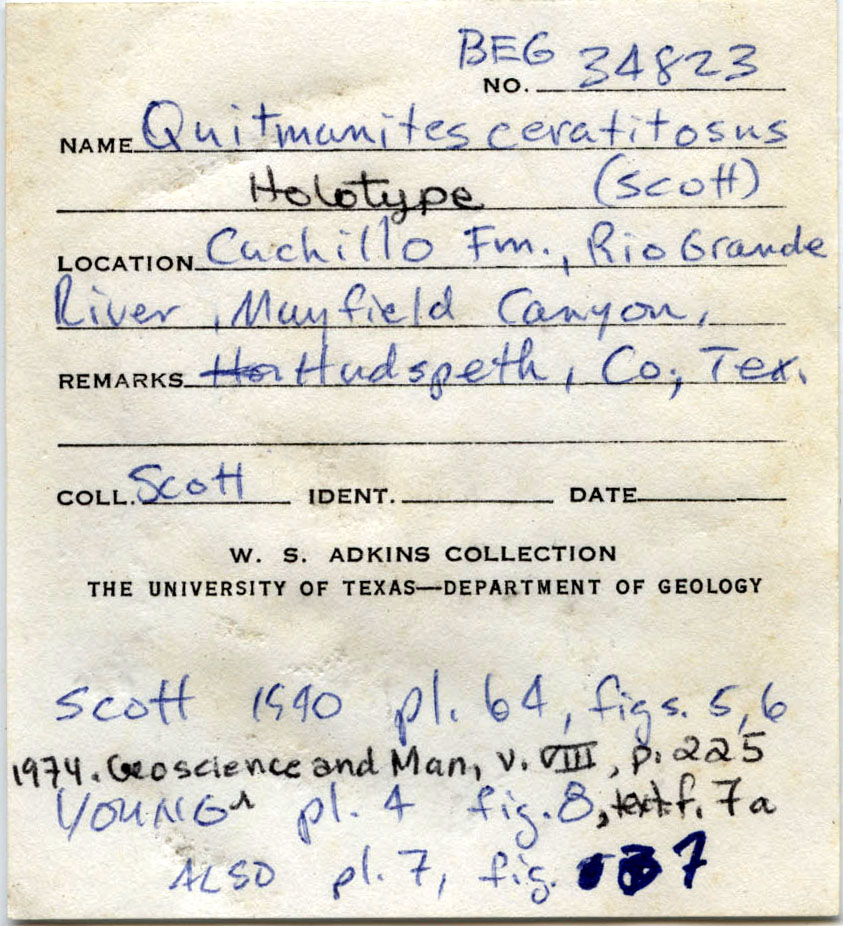 BEG
NO. 34823
NAME Quitmanites ceratitosus
Holotype (Scott)
LOCATION Cuchillo Fm., Rio Grande
River, Mayfield Canyon,
REMARKS Hudspeth, Co; Tex.
COLL. Scott IDENT. DATE
W. S. ADKINS COLLECTION
THE UNIVERSITY OF TEXAS—DEPARTMENT OF GEOLOGY
Scott 1940 pl. 64, figs. 5,6
1974. Geoscience and Man, v. VIII, p. 225
YOUNG pl. 4 fig. 8, text f. 7a
ALSO pl. 7, fig. 7